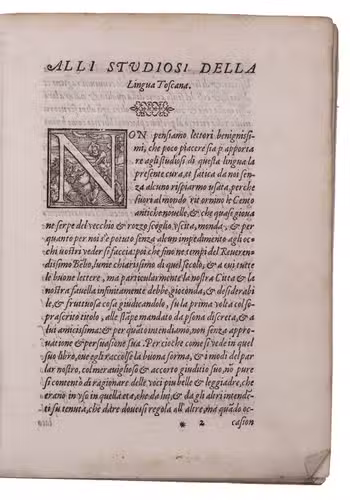 ALLI STVDIOSI DELLA
Lingua Toscana.
NON pensiamo lettori benignissi-
mi, che poco piacere sia p apporta
re agli studiosi di questa lingua la
presente cura, et fatica da noi sen-
za alcuno risparmio vsata, perche
fuori al mondo ritornino le Cento
antiche nouelle, & che quasi gioua
ne serpe del vecchio & rozzo scoglio vscita, monda, & per
quanto per noi s'e potuto senza alcun impedimento agli oc-
chi uostri veder si faccia: poi che fino ne tempi del Reueren-
dissimo Bēbo, lume chiarissimo di quel secolo, & a cui tutte
le buone lettere, ma particularmente la nostra Citta & la
nostra fauella infinitamente debbe, gioconda, & desiderabi
le, & fruttuosa cosa giudicandolo, fu la prima volta col so-
prascritto titolo, alle stāpe mandato da psona discreta, & a
lui amicissima: & per quāto intendiamo, non senza appro-
uatione & persuasione sua. Percioche come si vede in quel
suo libro, oue egli raccolse la buona forma, & i modi del par
lar nostro, col marauiglioso & accorto giuditio suo, nō pure
si contentò di ragionare delle voci piu belle & leggiadre, che
erano in vso in quella età, che da lui, & da gli altri intendē-
ti su tenuta, che dare douessi regola all'altre, ma quādo oc-
* 2
casion